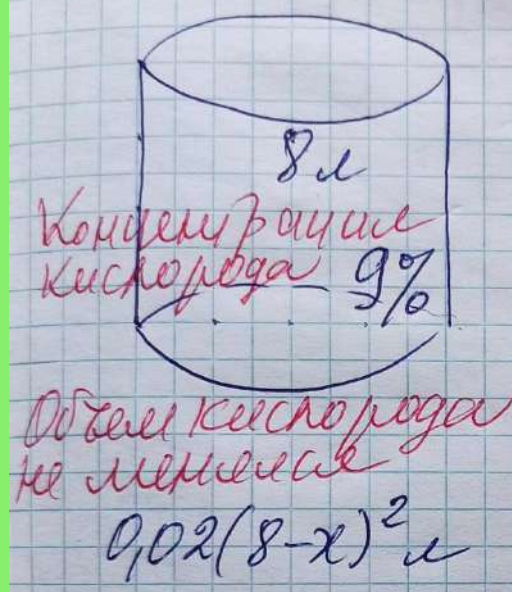 8 л
Концентрация
кислорода - 9%
Объем кислорода
не менялся
0,02(8-x)² л